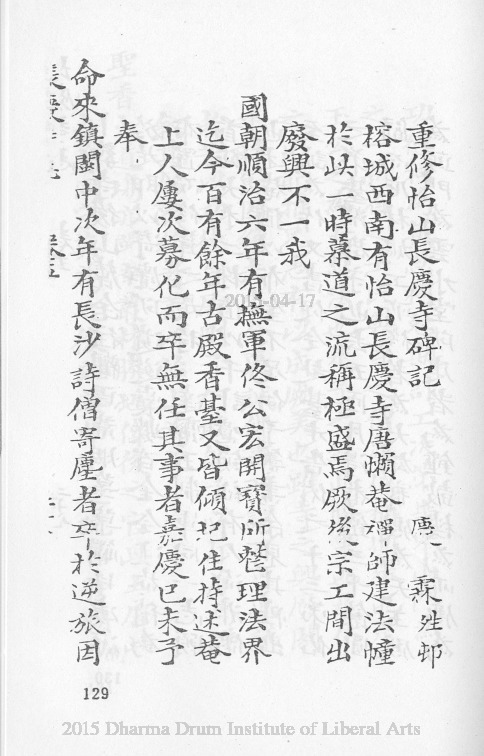 重修怡山長慶寺碑記 慶霖 姓邨
榕城西南有怡山長慶寺唐懶菴禪師建法幢
於此一時慕道之流稱極盛焉厥後宗工間出
廢興不一我
國朝順治六年有撫軍佟公宏開寶所整理法界
迄今百有餘年古殿香臺又皆傾圮住持述菴
上人屢次募化而卒無任其事者嘉慶已未予
奉
命來鎮閩中次年有長沙詩僧寄塵者卒於逆旅因
長慶寺志 卷五
129
2015-04-17
2015 Dharma Drum Institute of Liberal Arts